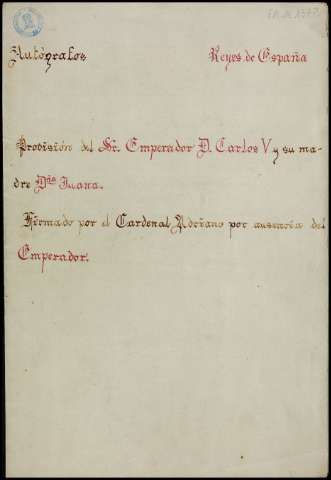 Autógrafos Reyes de España
Provisión del Sr. Emperador D. Carlos V y su ma-
dre Dña Juana.
Firmado por el Cardenal Adriano por ausencia del
Emperador.